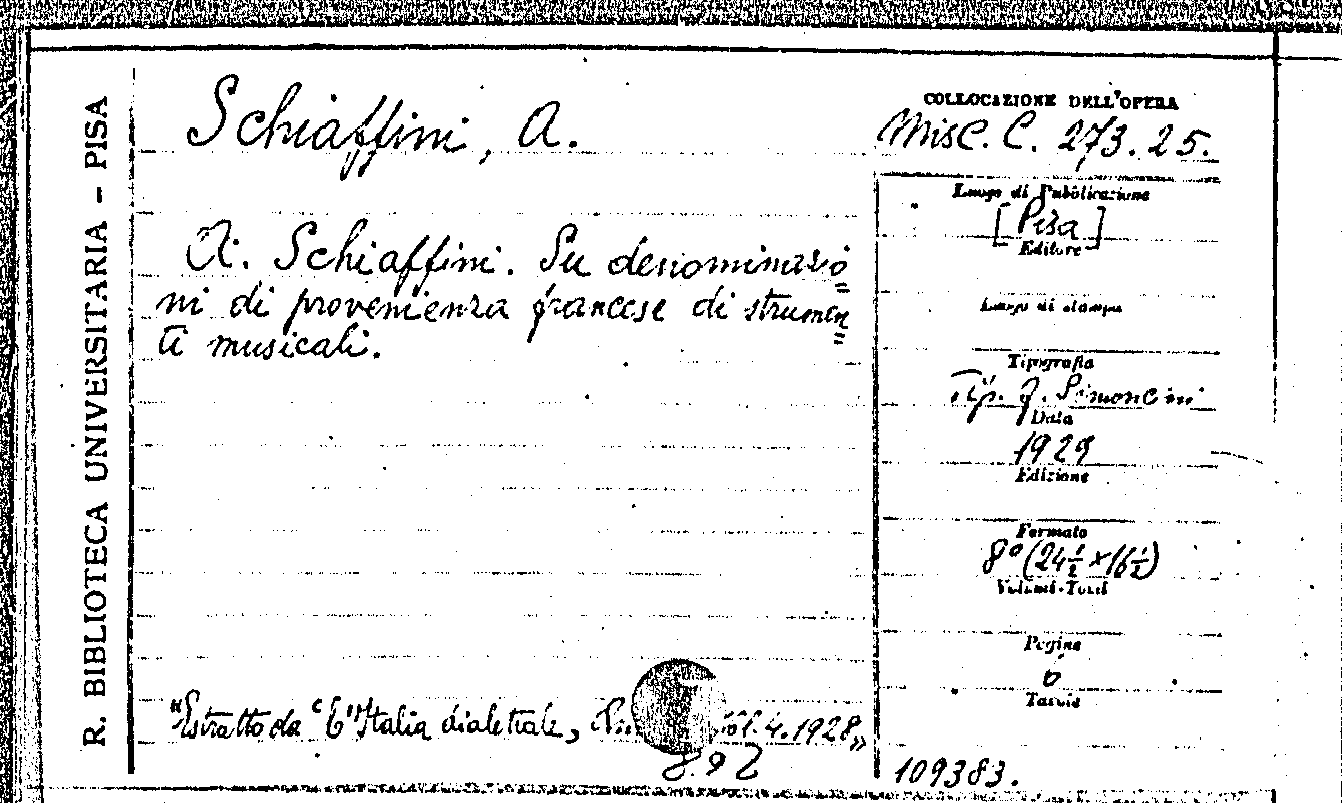 R. BIBLIOTECA UNIVERSITARIA – PISA
Schiaffini, A.
A. Schiaffini. Su denominazio=
ni di provenienza francese di strumen=
ti musicali.
"Estratto da "L'Italia dialettale, vol. 4. 1928"
8.92
COLLOCAZIONE DELL'OPERA
Misc. C. 273. 25.
Luogo di Pubblicazione
[Pisa]
Editore
Luogo di stampa
Tipografia
Tip. F. Simoncini
Data
1929
Edizione
Formato
8° (24½ × 16½)
Volumi-Tomi
Pagine
6
Tavole
109383.